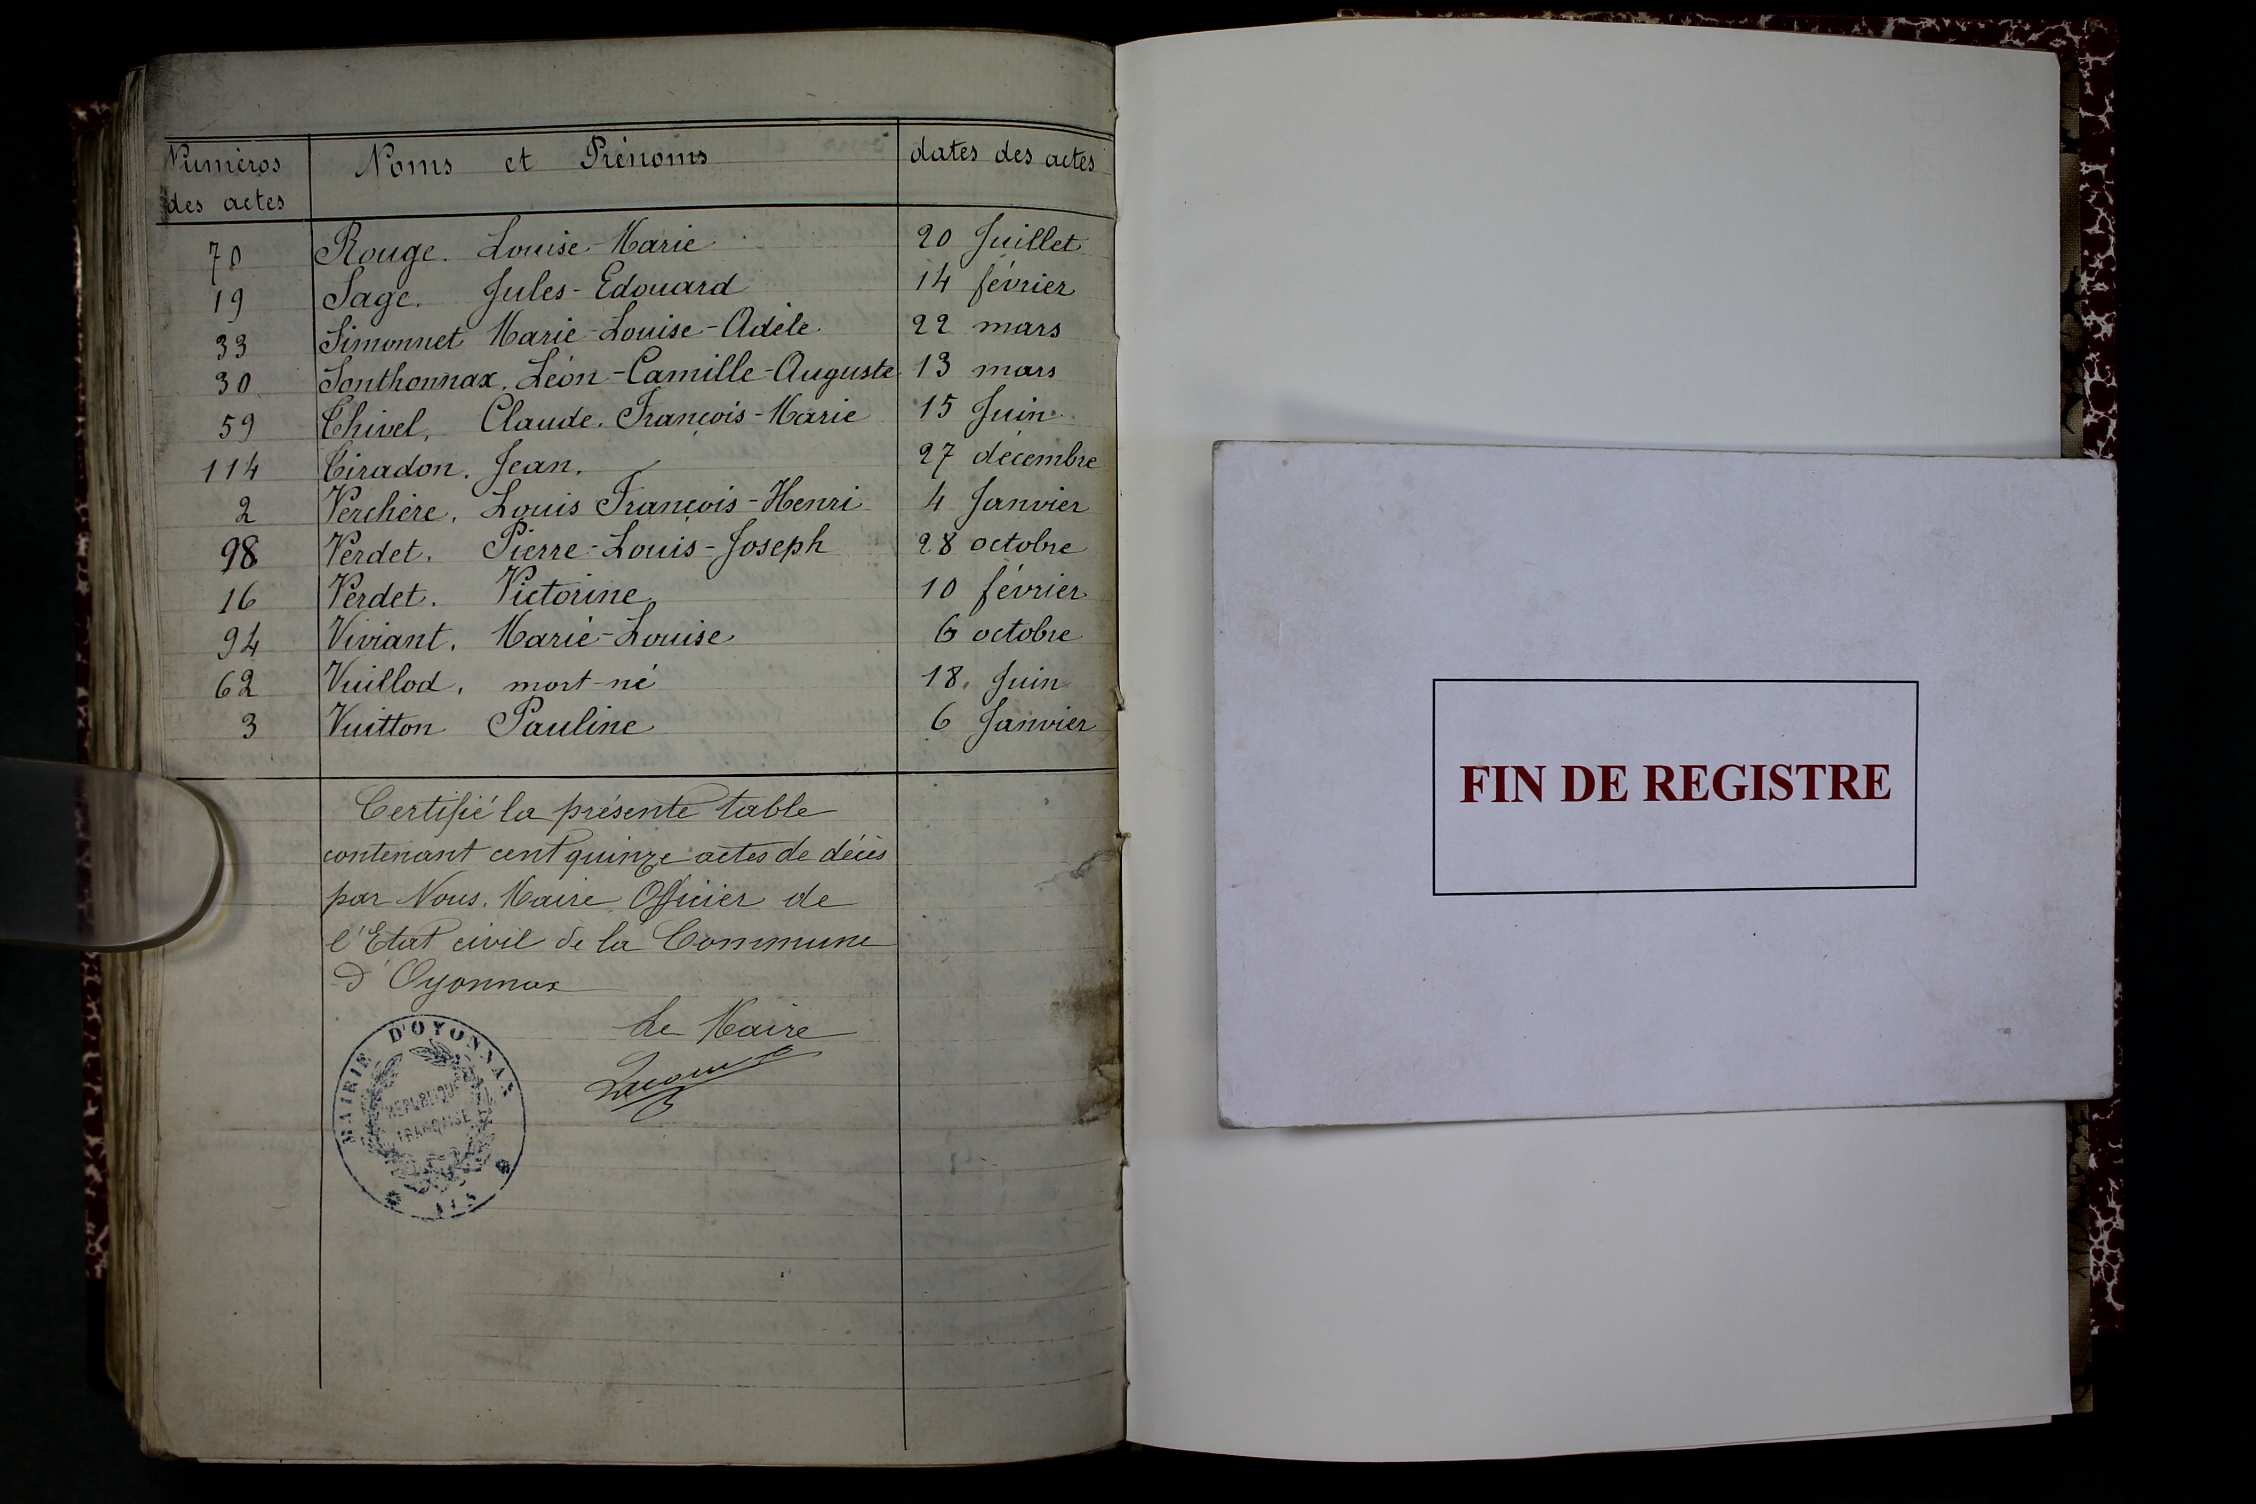 Numéros des actes Noms et Prénoms dates des actes
70 Rouge. Louise-Marie 20 Juillet
19 Sage. Jules-Edouard 14 février
33 Simonnet Marie-Louise-Adèle 22 mars
30 Sonthonnax, Léon-Camille-Auguste 13 mars
59 Thivel, Claude. François-Marie 15 Juin
114 Tiradon. Jean. 27 décembre
2 Verchère, Louis François-Henri 4 Janvier
98 Verdet. Pierre-Louis-Joseph 28 octobre
16 Verdet. Victorine 10 février
94 Viviant. Marie-Louise 6 octobre
62 Vuillod, mort-né 18 Juin
3 Vuitton Pauline 6 Janvier
Certifié la présente table
contenant cent quinze actes de décès
par Nous. Maire Officier de
l'Etat civil de la Commune
d'Oyonnax
Le Maire
MAIRIE D'OYONNAX
RÉPUBLIQUE
FRANÇAISE
AIN
FIN DE REGISTRE